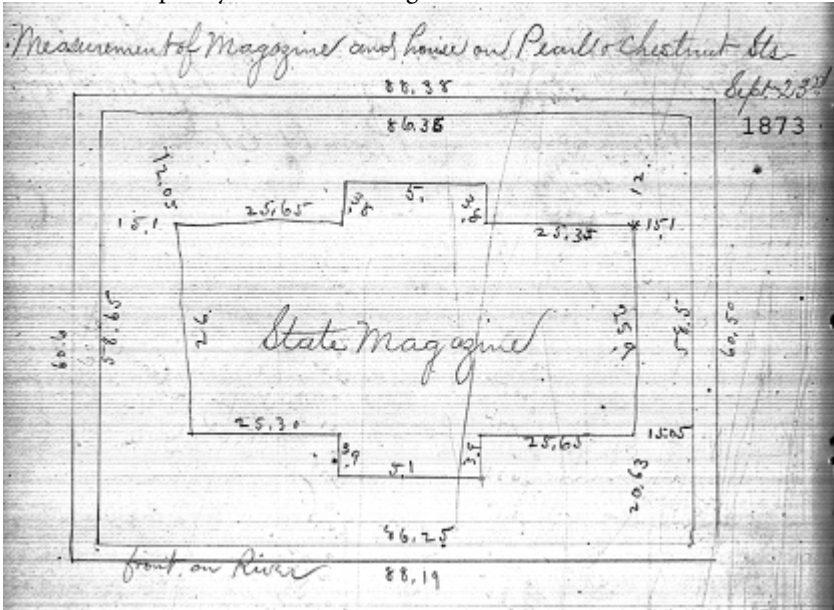 Measurement of Magazine and house on Pearl & Chestnut Sts
Sept 23rd
1873
88.38
86.35
12.05
12.
25.65
.38
5.
3.8
25.35
15.1
15.1
60.6
58.65
26.
State Magazine
25.9
58.5
60.50
25.30
3.9
5.1
3.9
25.65
15.05
20.63
86.25
front on River
88.19